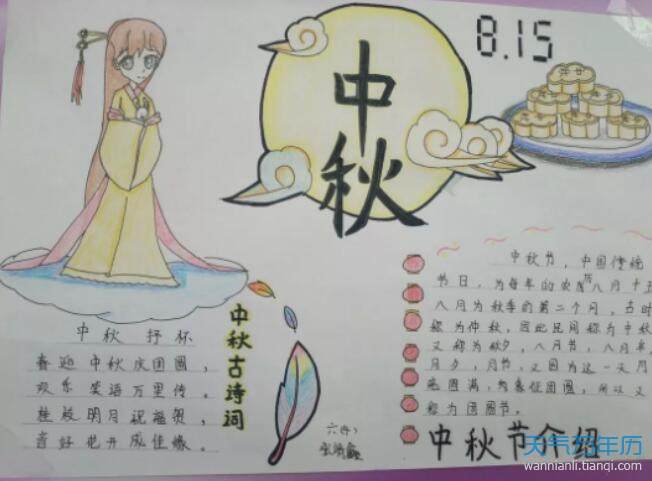 8.15
中
秋
中秋 抒怀
喜迎中秋庆团圆，
欢乐笑语万里传。
桂殿明月祝福贺，
喜好花开成佳缘。
中秋古诗词
中秋节，中国传统
节日，为每年的农历八月十五
八月为秋季的第二个月，古时
称为仲秋，因此民间称为中秋
又称为秋夕，八月节，八月半，
月夕，月节，又因为这一天月
亮圆满，象征团圆，所以又
称为团圆节。
中秋节介绍
天气万年历
wannianli.tianqi.com